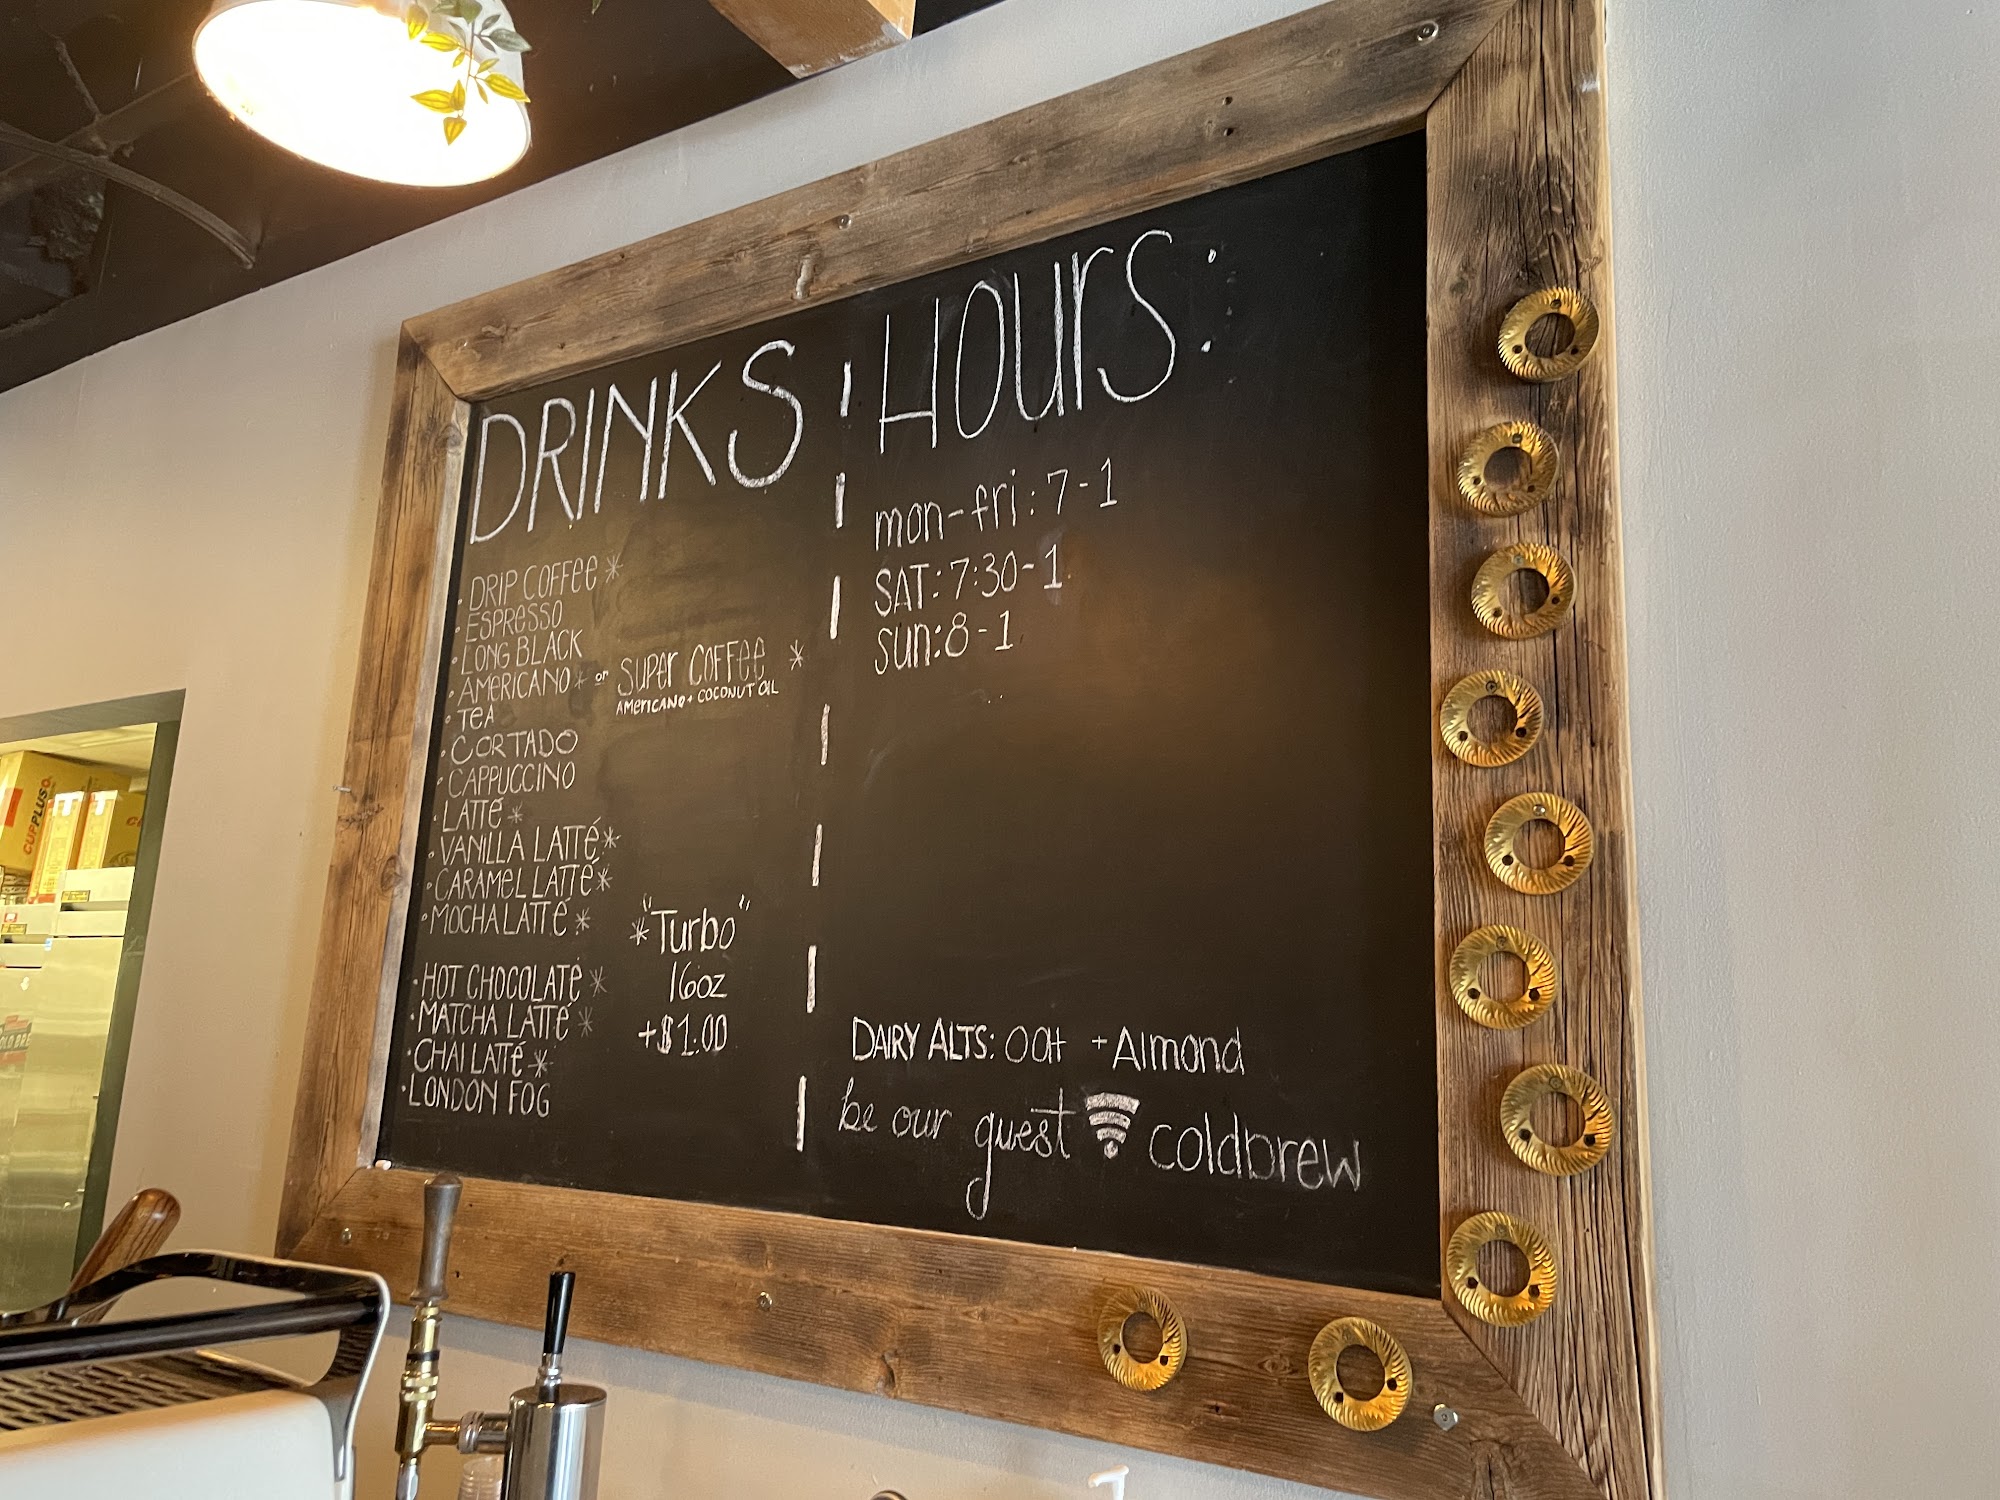 DRINKS
• DRIP COFFEE *
• ESPRESSO
• LONG BLACK
• AMERICANO * or SUPER COFFEE *
AMERICANO + COCONUT OIL
• TEA
• CORTADO
• CAPPUCCINO
• LATTÉ *
• VANILLA LATTÉ *
• CARAMEL LATTÉ *
• MOCHA LATTÉ *
• HOT CHOCOLATE *
• MATCHA LATTÉ *
• CHAI LATTÉ *
• LONDON FOG
* "Turbo"
16oz
+$1.00
HOURS:
mon-fri: 7-1
SAT: 7:30-1
sun: 8-1
DAIRY ALTS: OAt + Almond
be our guest coldbrew
CUPPLUS